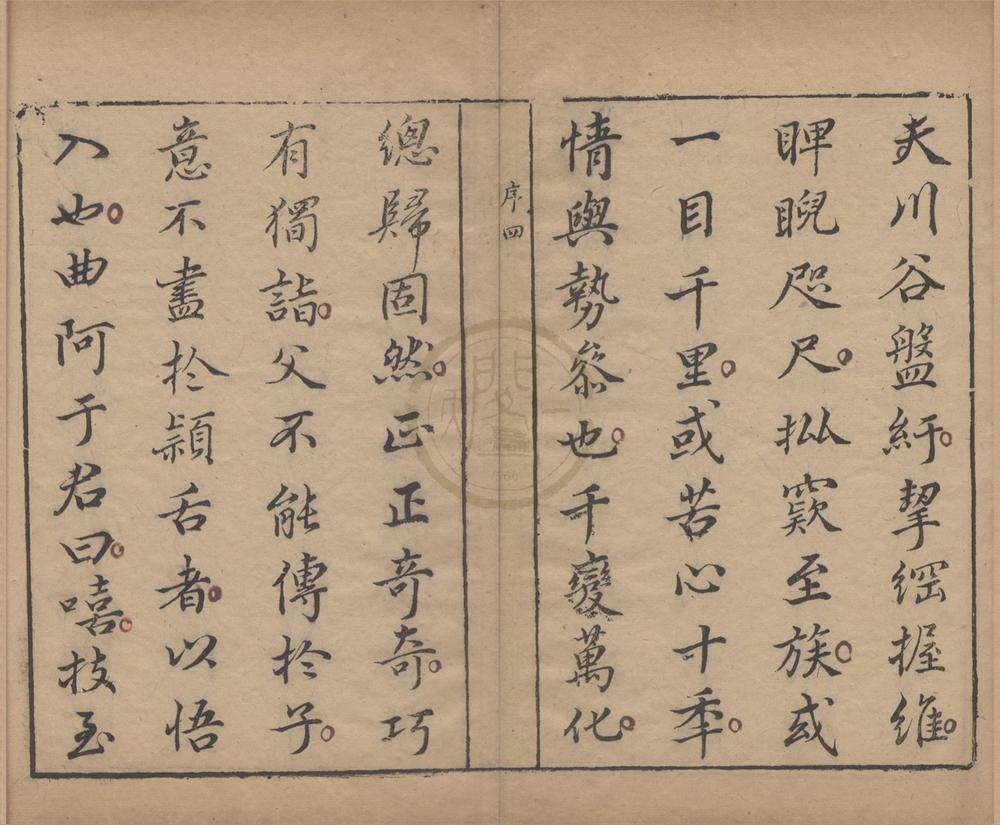 夫川谷盤紆挈綱握維
睥睨咫尺批窾至族或
一目千里或苦心十年
情與勢叅也千變萬化
序四
總歸固然正正奇奇巧
有獨詣父不能傳於子
意不盡於穎舌者以悟
入也曲阿于君曰嘻技至